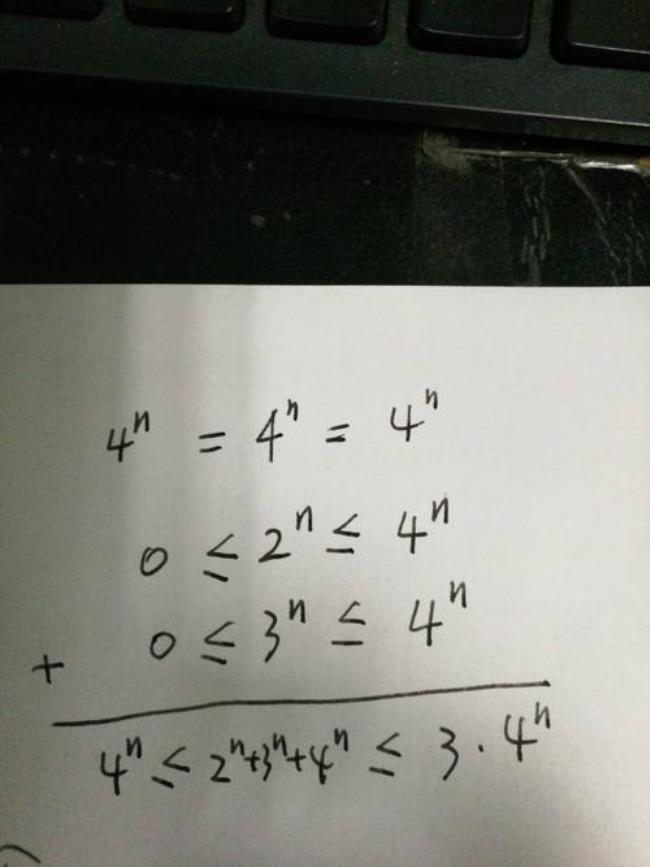 4ⁿ = 4ⁿ = 4ⁿ
0 ≤ 2ⁿ ≤ 4ⁿ
+ 0 ≤ 3ⁿ ≤ 4ⁿ
4ⁿ ≤ 2ⁿ+3ⁿ+4ⁿ ≤ 3 · 4ⁿ